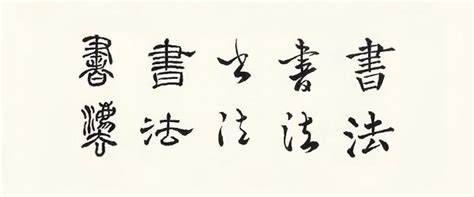 書法
書法
书法
書法
書灋